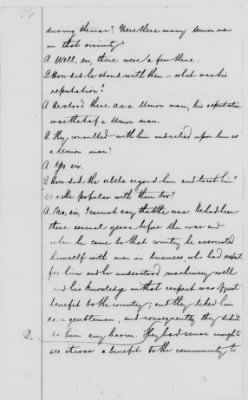 56
during the war? Were there many Union men
in that vicinity
A. Well, sir, there were a few there.
Q. How did he stand with them - what was his
reputation?
A. He stood there as a Union man, his reputation
was that of a Union man.
Q. They consulted with him and relied upon him as
a Union man?
A. Yes sir.
Q. How did the rebels regard him and treat him?
was he popular with them too?
A. No, sir, I cannot say that he was. He had been
there several years before the war and
when he came to that country he associated
himself with men in business, who had respect
for him and he understood machinery well
and his knowledge in that respect was of great
benefit to the country, and they liked him
as a gentleman, and consequently they didn't
do him any harm. They had sense enough to
see it was a benefit to the community to